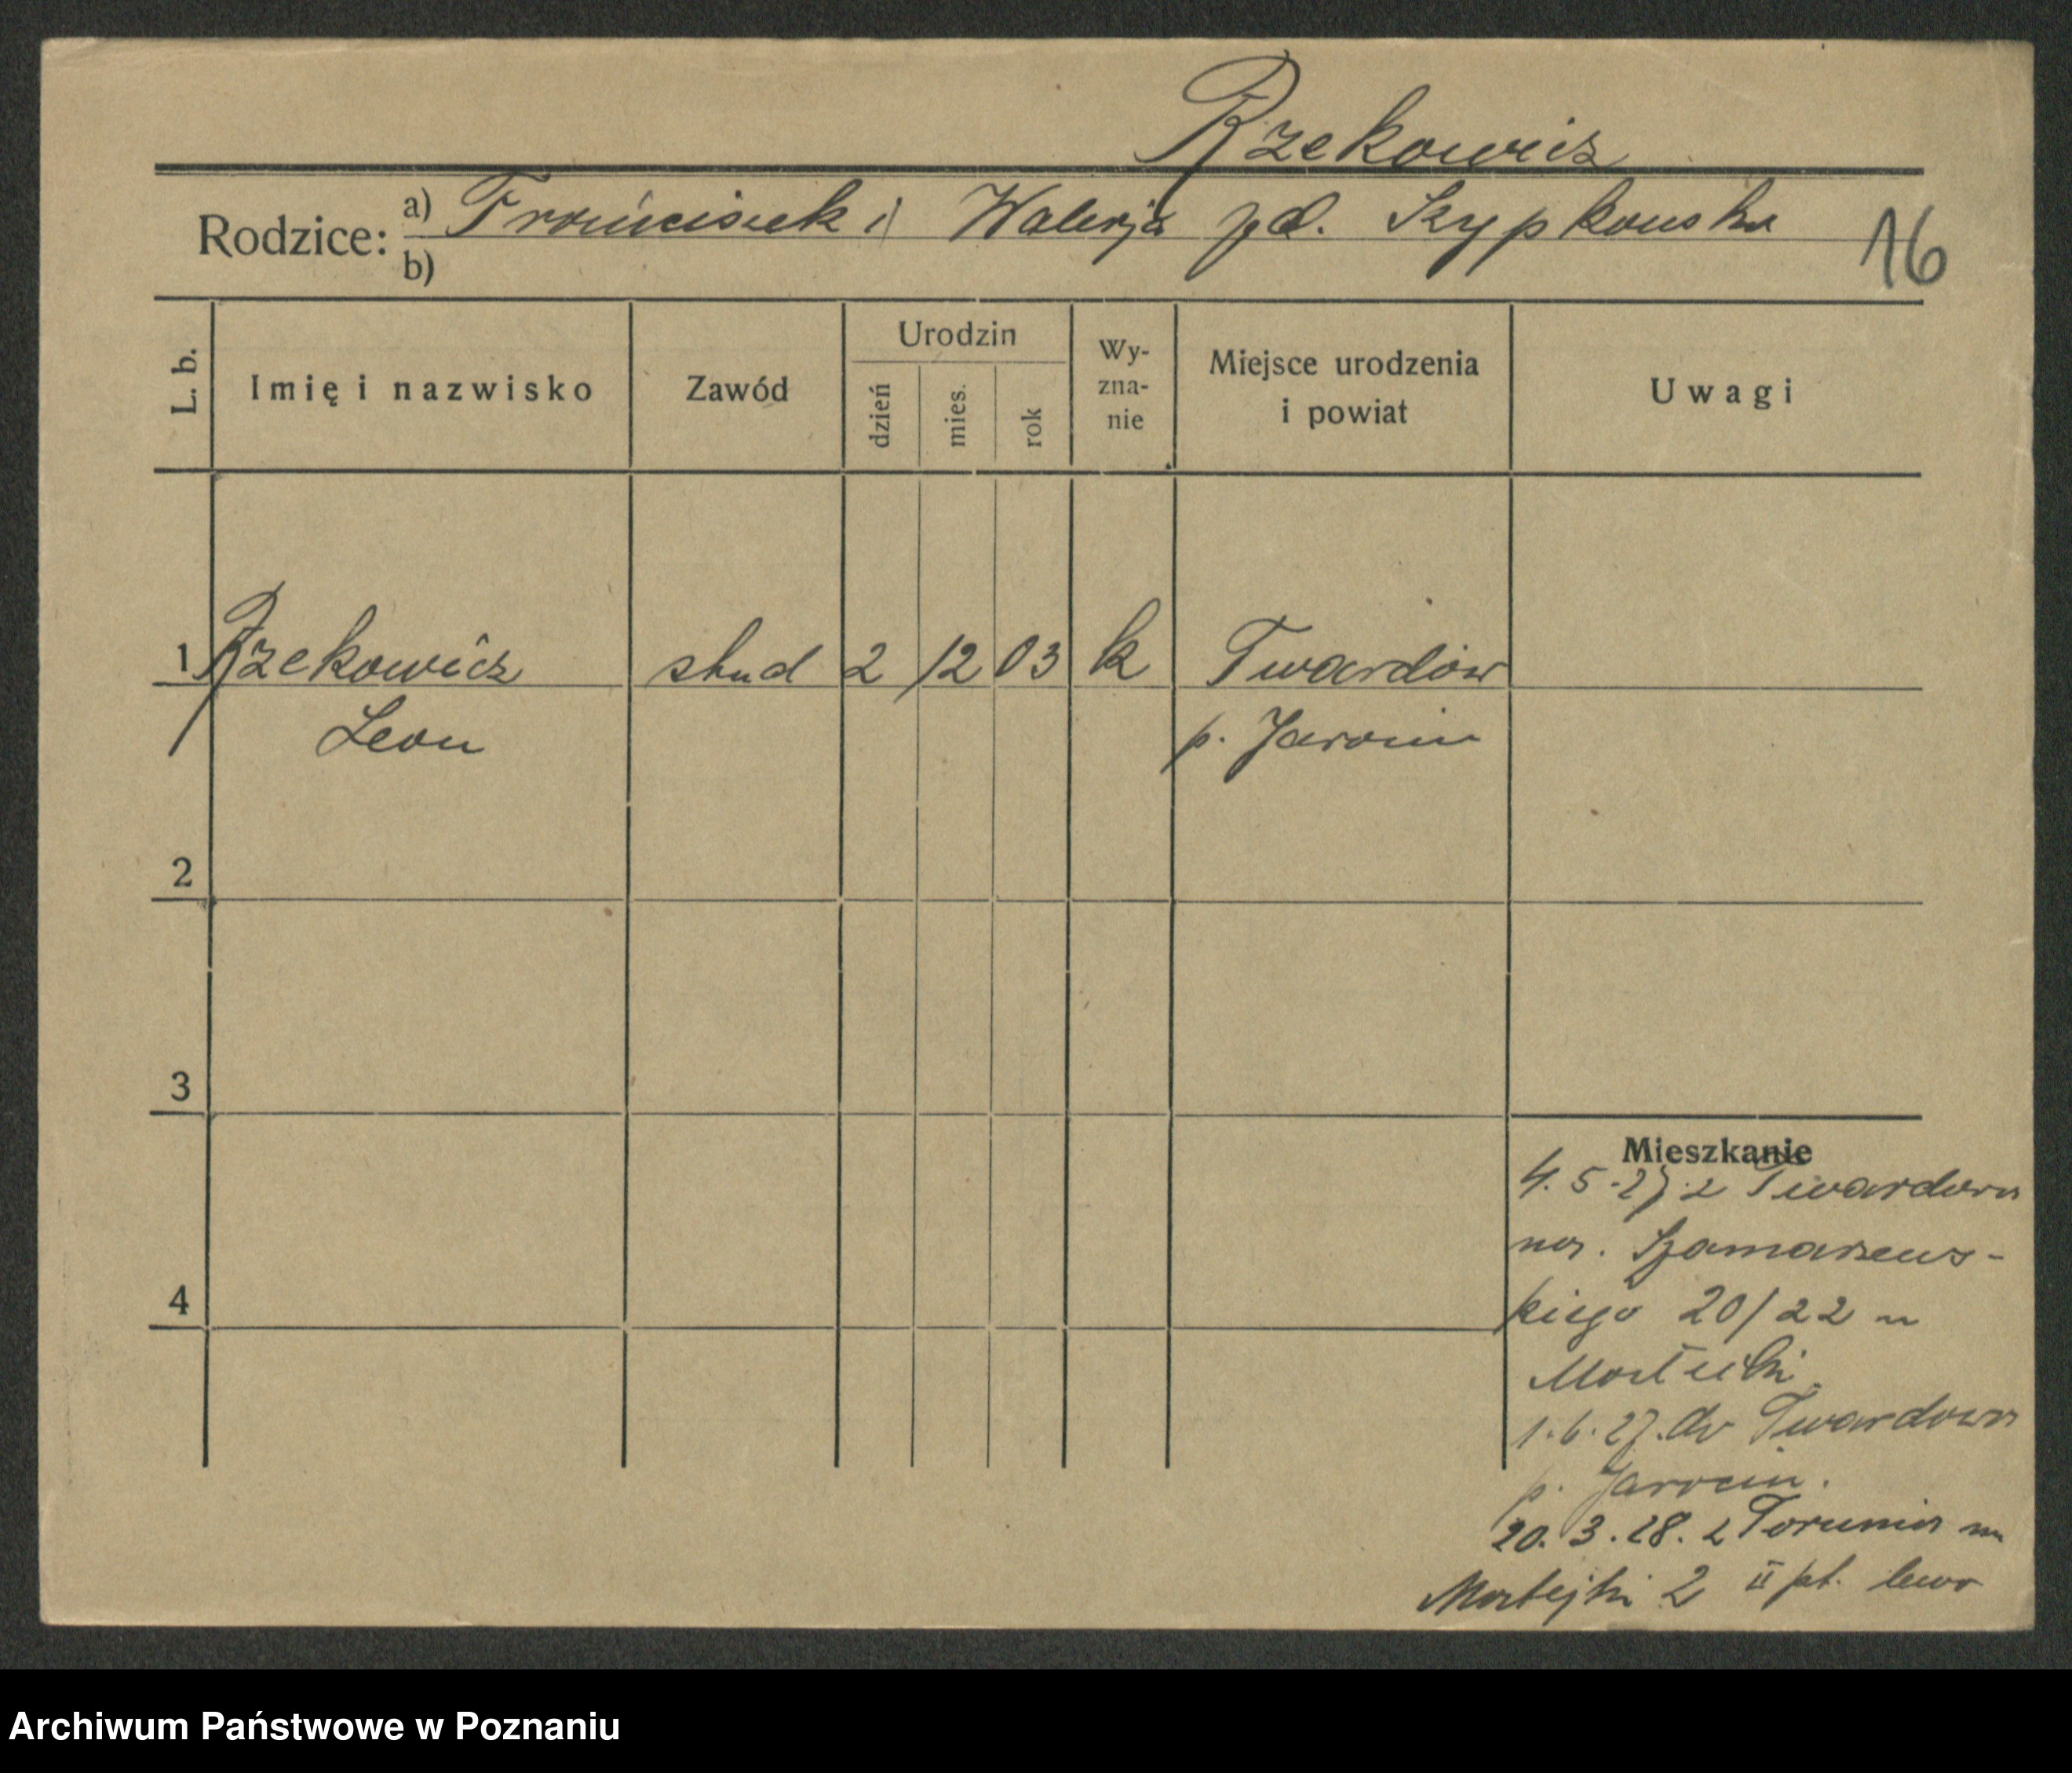 Rzekowicz
Rodzice: a) Franciszek i Walerja zd. Szypkowska
b)
16
L. b.
Imię i nazwisko
Zawód
Urodzin
dzień
mies.
rok
Wy-
zna-
nie
Miejsce urodzenia
i powiat
Uwagi
1 Rzekowicz stud 2 12 03 k Twardów
Leon p. Jarocin
2
3
4
Mieszkanie
4.5.27. z Twardowa
na. Szamarzews-
kiego 20/22 u
1.6.27. do Twardowa
p. Jarocin.
20.3.28. z Torunia na
Matejki 2 II pt. lewo
Archiwum Państwowe w Poznaniu